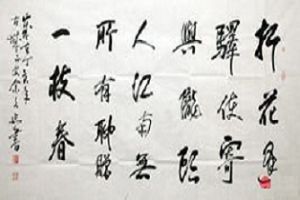 折花逢
驛使寄
與隴頭
人江南無
所有聊贈
一枝春